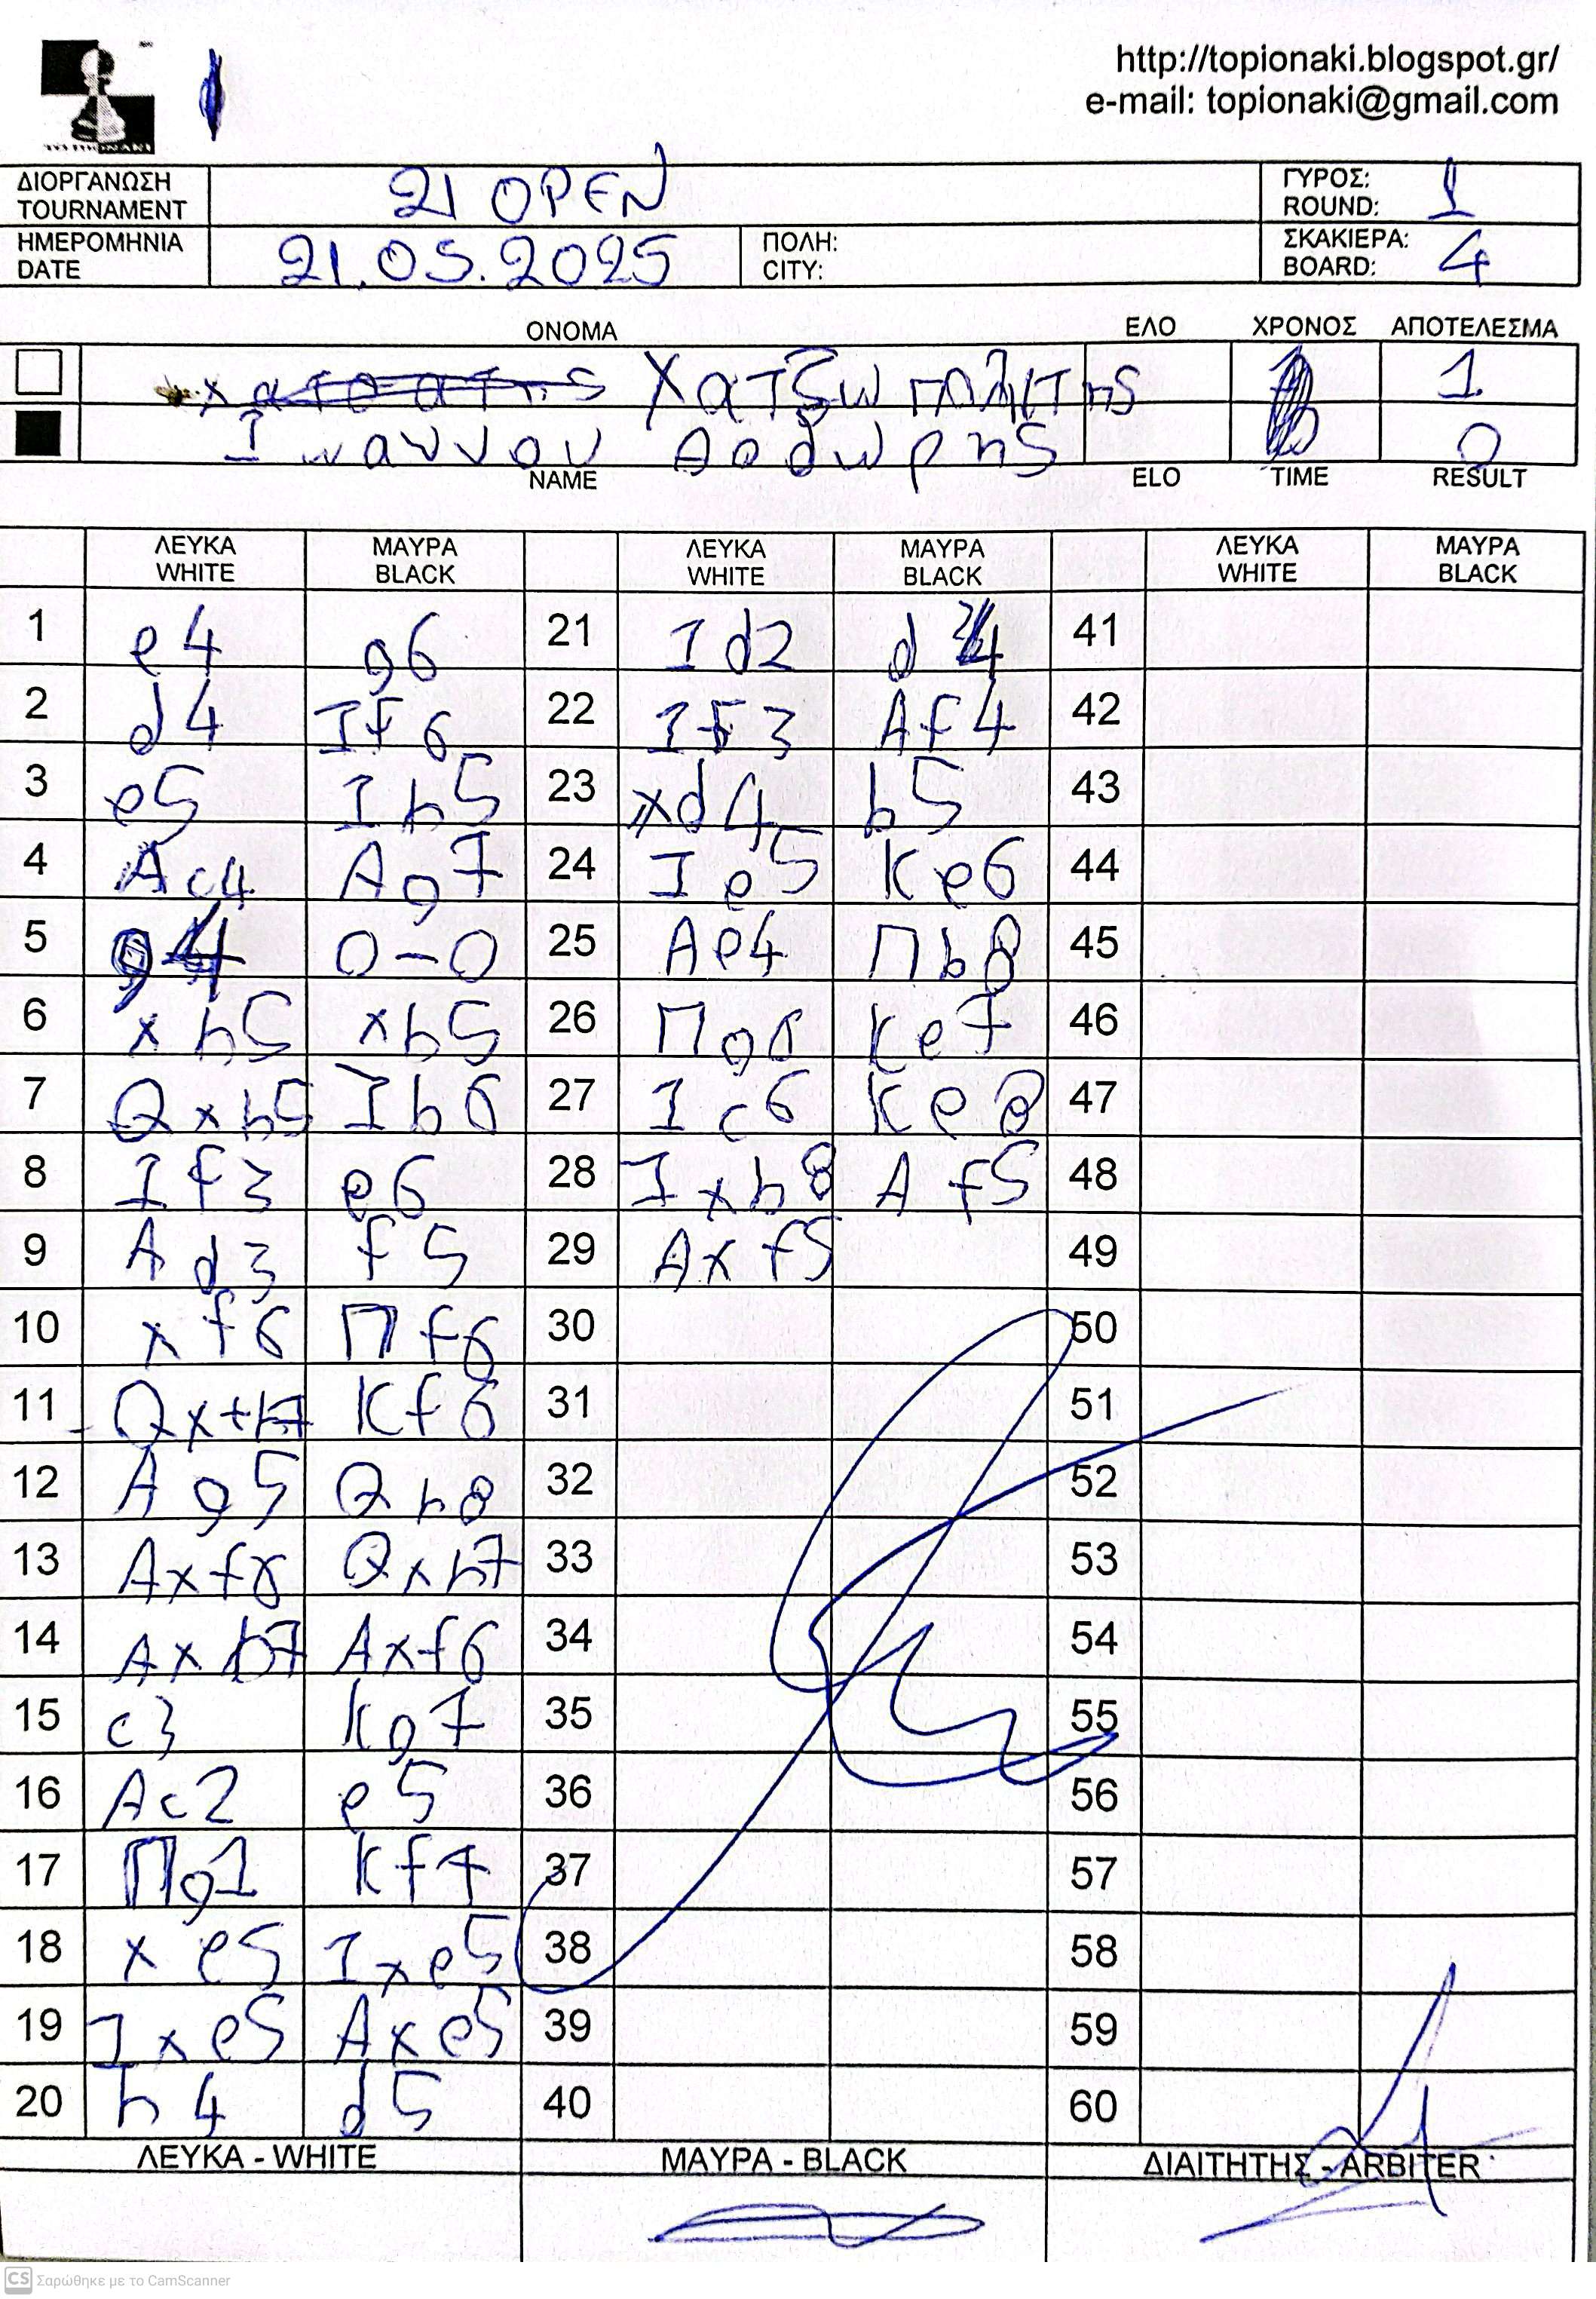 http://topionaki.blogspot.gr/
e-mail: topionaki@gmail.com
ΔΙΟΡΓΑΝΩΣΗ
TOURNAMENT
21 OPEN
ΓΥΡΟΣ:
ROUND:
1
ΗΜΕΡΟΜΗΝΙΑ
DATE
21.05.2025
ΠΟΛΗ:
CITY:
ΣΚΑΚΙΕΡΑ:
BOARD:
4
ΟΝΟΜΑ ΕΛΟ ΧΡΟΝΟΣ ΑΠΟΤΕΛΕΣΜΑ
1
Ιωαννου 0
NAME ELO TIME RESULT
ΛΕΥΚΑ ΜΑΥΡΑ ΛΕΥΚΑ ΜΑΥΡΑ ΛΕΥΚΑ ΜΑΥΡΑ
WHITE BLACK WHITE BLACK WHITE BLACK
1 e4 g6 21 Id2 d4 41
2 d4 If6 22 If3 Af4 42
3 e5 Ih5 23 xd4 b5 43
4 Ac4 Ag7 24 Ie5 Ke6 44
5 g4 0-0 25 Ae4 Πb8 45
6 xh5 xh5 26 Πg6 Ke7 46
7 Qxh5 Ib6 27 Ic6 Ke8 47
8 If3 e6 28 Ixb8 Af5 48
9 Ad3 f5 29 Axf5 49
10 xf6 Πf6 30 50
11 Qx+h7 Kf6 31 51
12 Ag5 Qh8 32 52
13 Axf6 Qxh7 33 53
14 Axh7 Axf6 34 54
15 c3 Kg7 35 55
16 Ac2 e5 36 56
17 Πg1 Kf7 37 57
18 xe5 Ixe5 38 58
19 Ixe5 Axe5 39 59
20 h4 d5 40 60
ΛΕΥΚΑ - WHITE ΜΑΥΡΑ - BLACK ΔΙΑΙΤΗΤΗΣ - ARBITER
CS Σαρώθηκε με το CamScanner